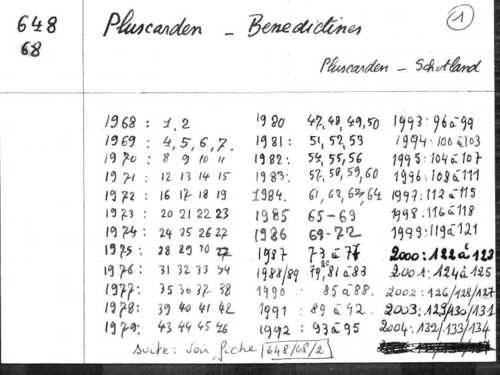 648
68
Pluscarden - Benedictines
1
Pluscarden - Schotland
1968 : 1, 2
1969 : 4, 5, 6, 7.
1970 : 8 9 10 11
1971 : 12 13 14 15
1972 : 16 17 18 19
1973 : 20 21 22 23
1974 : 24 25 26 27
1975 : 28 29 30
1976 : 31 32 33 34
1977 : 35 36 37 38
1978 : 39 40 41 42
1979 : 43 44 45 46
1980 47, 48, 49, 50
1981 : 51, 52, 53
1982 : 54, 55, 56
1983 : 57, 58, 59, 60
1984. 61, 62, 63, 64
1985 65-69
1986 69-72
1987 73 à 77
1988/89 79, 80, 81 à 83
1990 85 à 88.
1991 : 89 à 92.
1992 : 93 à 95
1993 : 96 à 99
1994 : 100 à 103
1995 : 104 à 107
1996 : 108 à 111
1997 : 112 à 115
1998 : 116 à 118
1999 : 119 à 121
2000 : 122 à 123
2001 : 124 à 125
2002 : 126/128/127
2003 : 129/130/131
2004 : 132/133/134
suite : voir fiche 648/68/2